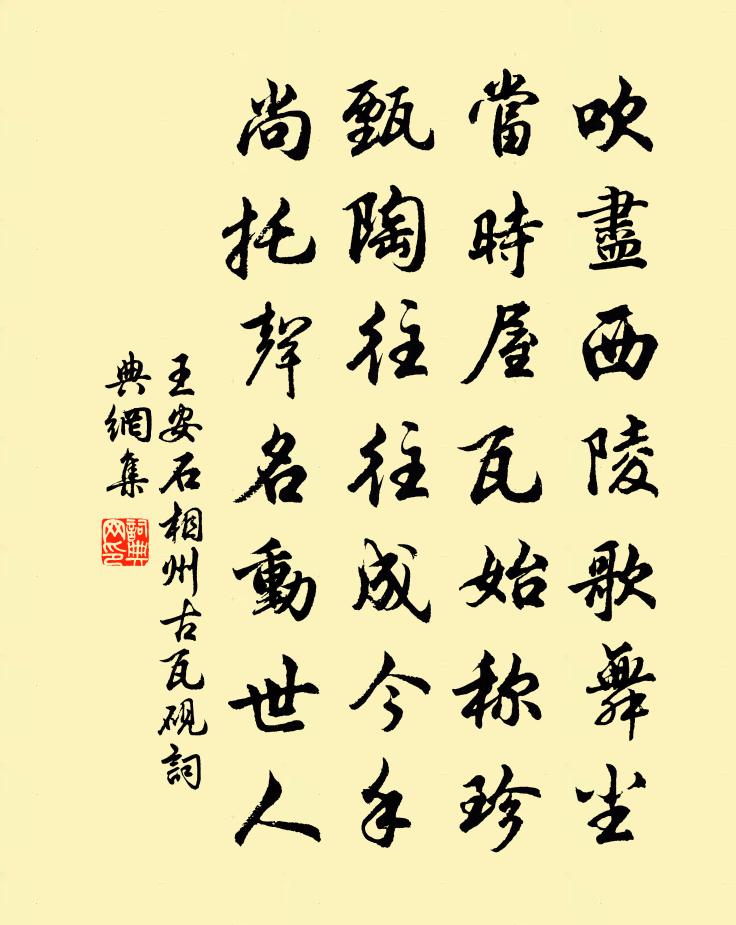 吹盡西陵歌舞尘
當時屋瓦始称珍
甄陶往往成今手
尚托聲名動世人
王安石相州古瓦硯詞
典網集
詞典
网印